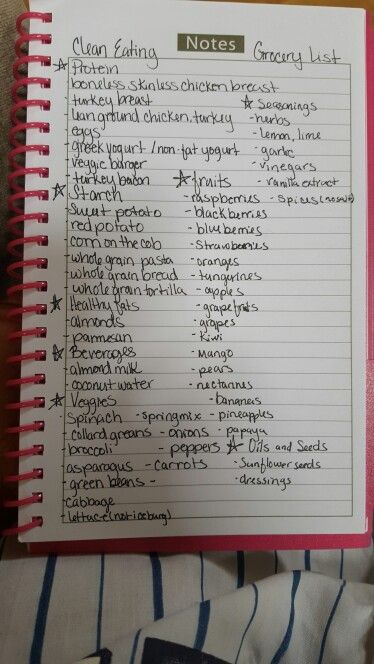 Clean Eating Notes Grocery List
☆ Protein
boneless skinless chicken breast
turkey breast ☆ Seasonings
lean ground chicken, turkey - herbs
eggs - lemon, lime
greek yogurt / non-fat yogurt - garlic
veggie burger - vinegars
turkey bacon ☆ fruits - vanilla extract
☆ Starch - raspberries - spices (no salt)
sweet potato - blackberries
red potato - blueberries
corn on the cob - strawberries
whole grain pasta - oranges
whole grain bread - tangerines
whole grain tortilla - apples
☆ Healthy fats - grapefruits
almonds - grapes
parmesan - kiwi
☆ Beverages - mango
almond milk - pears
coconut water - nectarines
☆ Veggies - bananas
Spinach - springmix - pineapples
collard greens - onions - papaya
broccoli - peppers ☆ Oils and Seeds
asparagus - carrots - Sunflower seeds
green beans - - dressings
cabbage
lettuce (not iceburg)